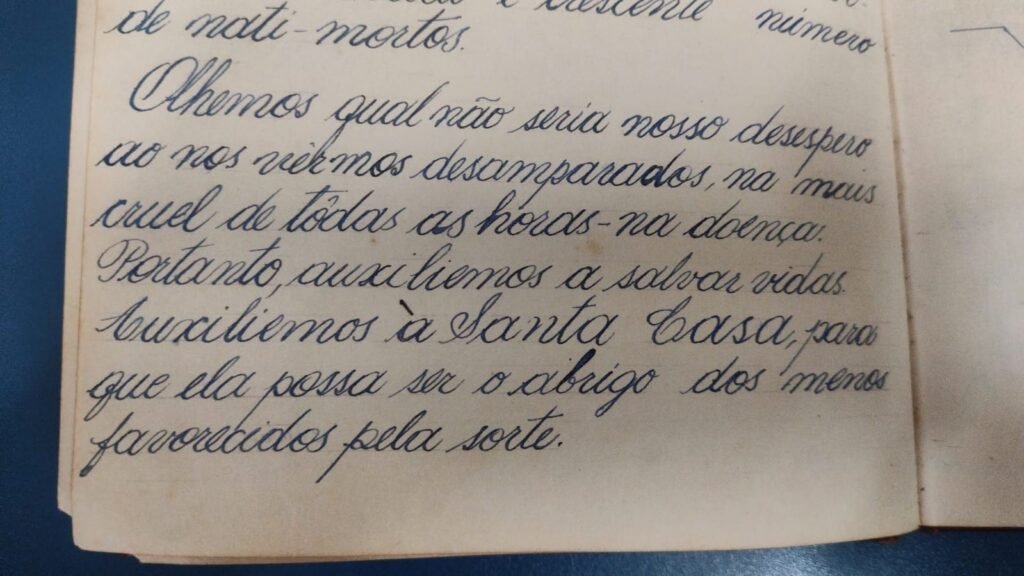 e crescente número
de nati-mortos.
Olhemos qual não seria nosso desespero
ao nos vermos desamparados, na mais
cruel de tôdas as horas-na doença.
Portanto, auxiliemos a salvar vidas.
Auxiliemos à Santa Casa, para
que ela possa ser o abrigo dos menos
favorecidos pela sorte.